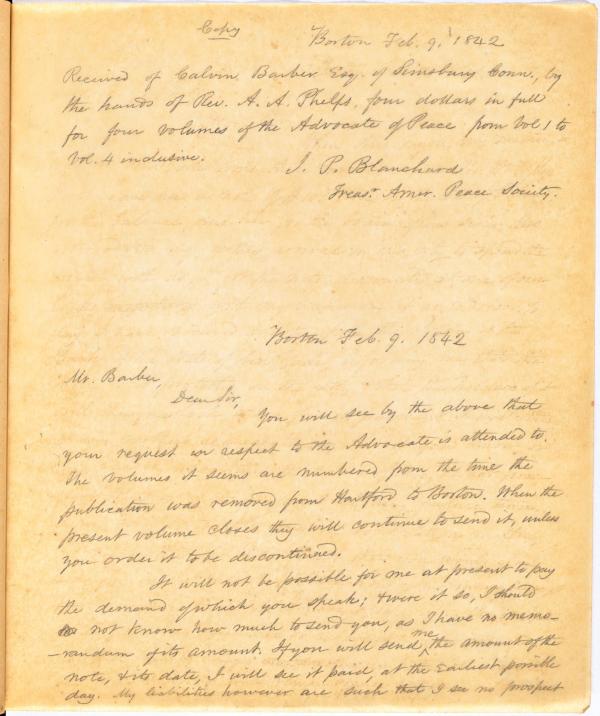 Copy
Boston Feb. 9, 1842
Received of Calvin Barber Esq. of Simsbury Conn., by
the hands of Rev. A. A. Phelps, four dollars in full
for four volumes of the Advocate of Peace from Vol 1 to
Vol. 4 inclusive.
J. P. Blanchard
Treasr. Amer. Peace Society.
Boston Feb. 9. 1842
Mr. Barber,
Dear Sir,
You will see by the above that
your request in respect to the Advocate is attended to.
The volumes it seems are numbered from the time the
publication was removed from Hartford to Boston. When the
present volume closes they will continue to send it, unless
you order it to be discontinued.
It will not be possible for me at present to pay
the demand of which you speak; & were it so, I should
not know how much to send you, as I have no memo-
-randum of its amount. If you will send me, the amount of the
note, & its date, I will see it paid, at the earliest possible
day. My liabilities however are such that I see no prospect